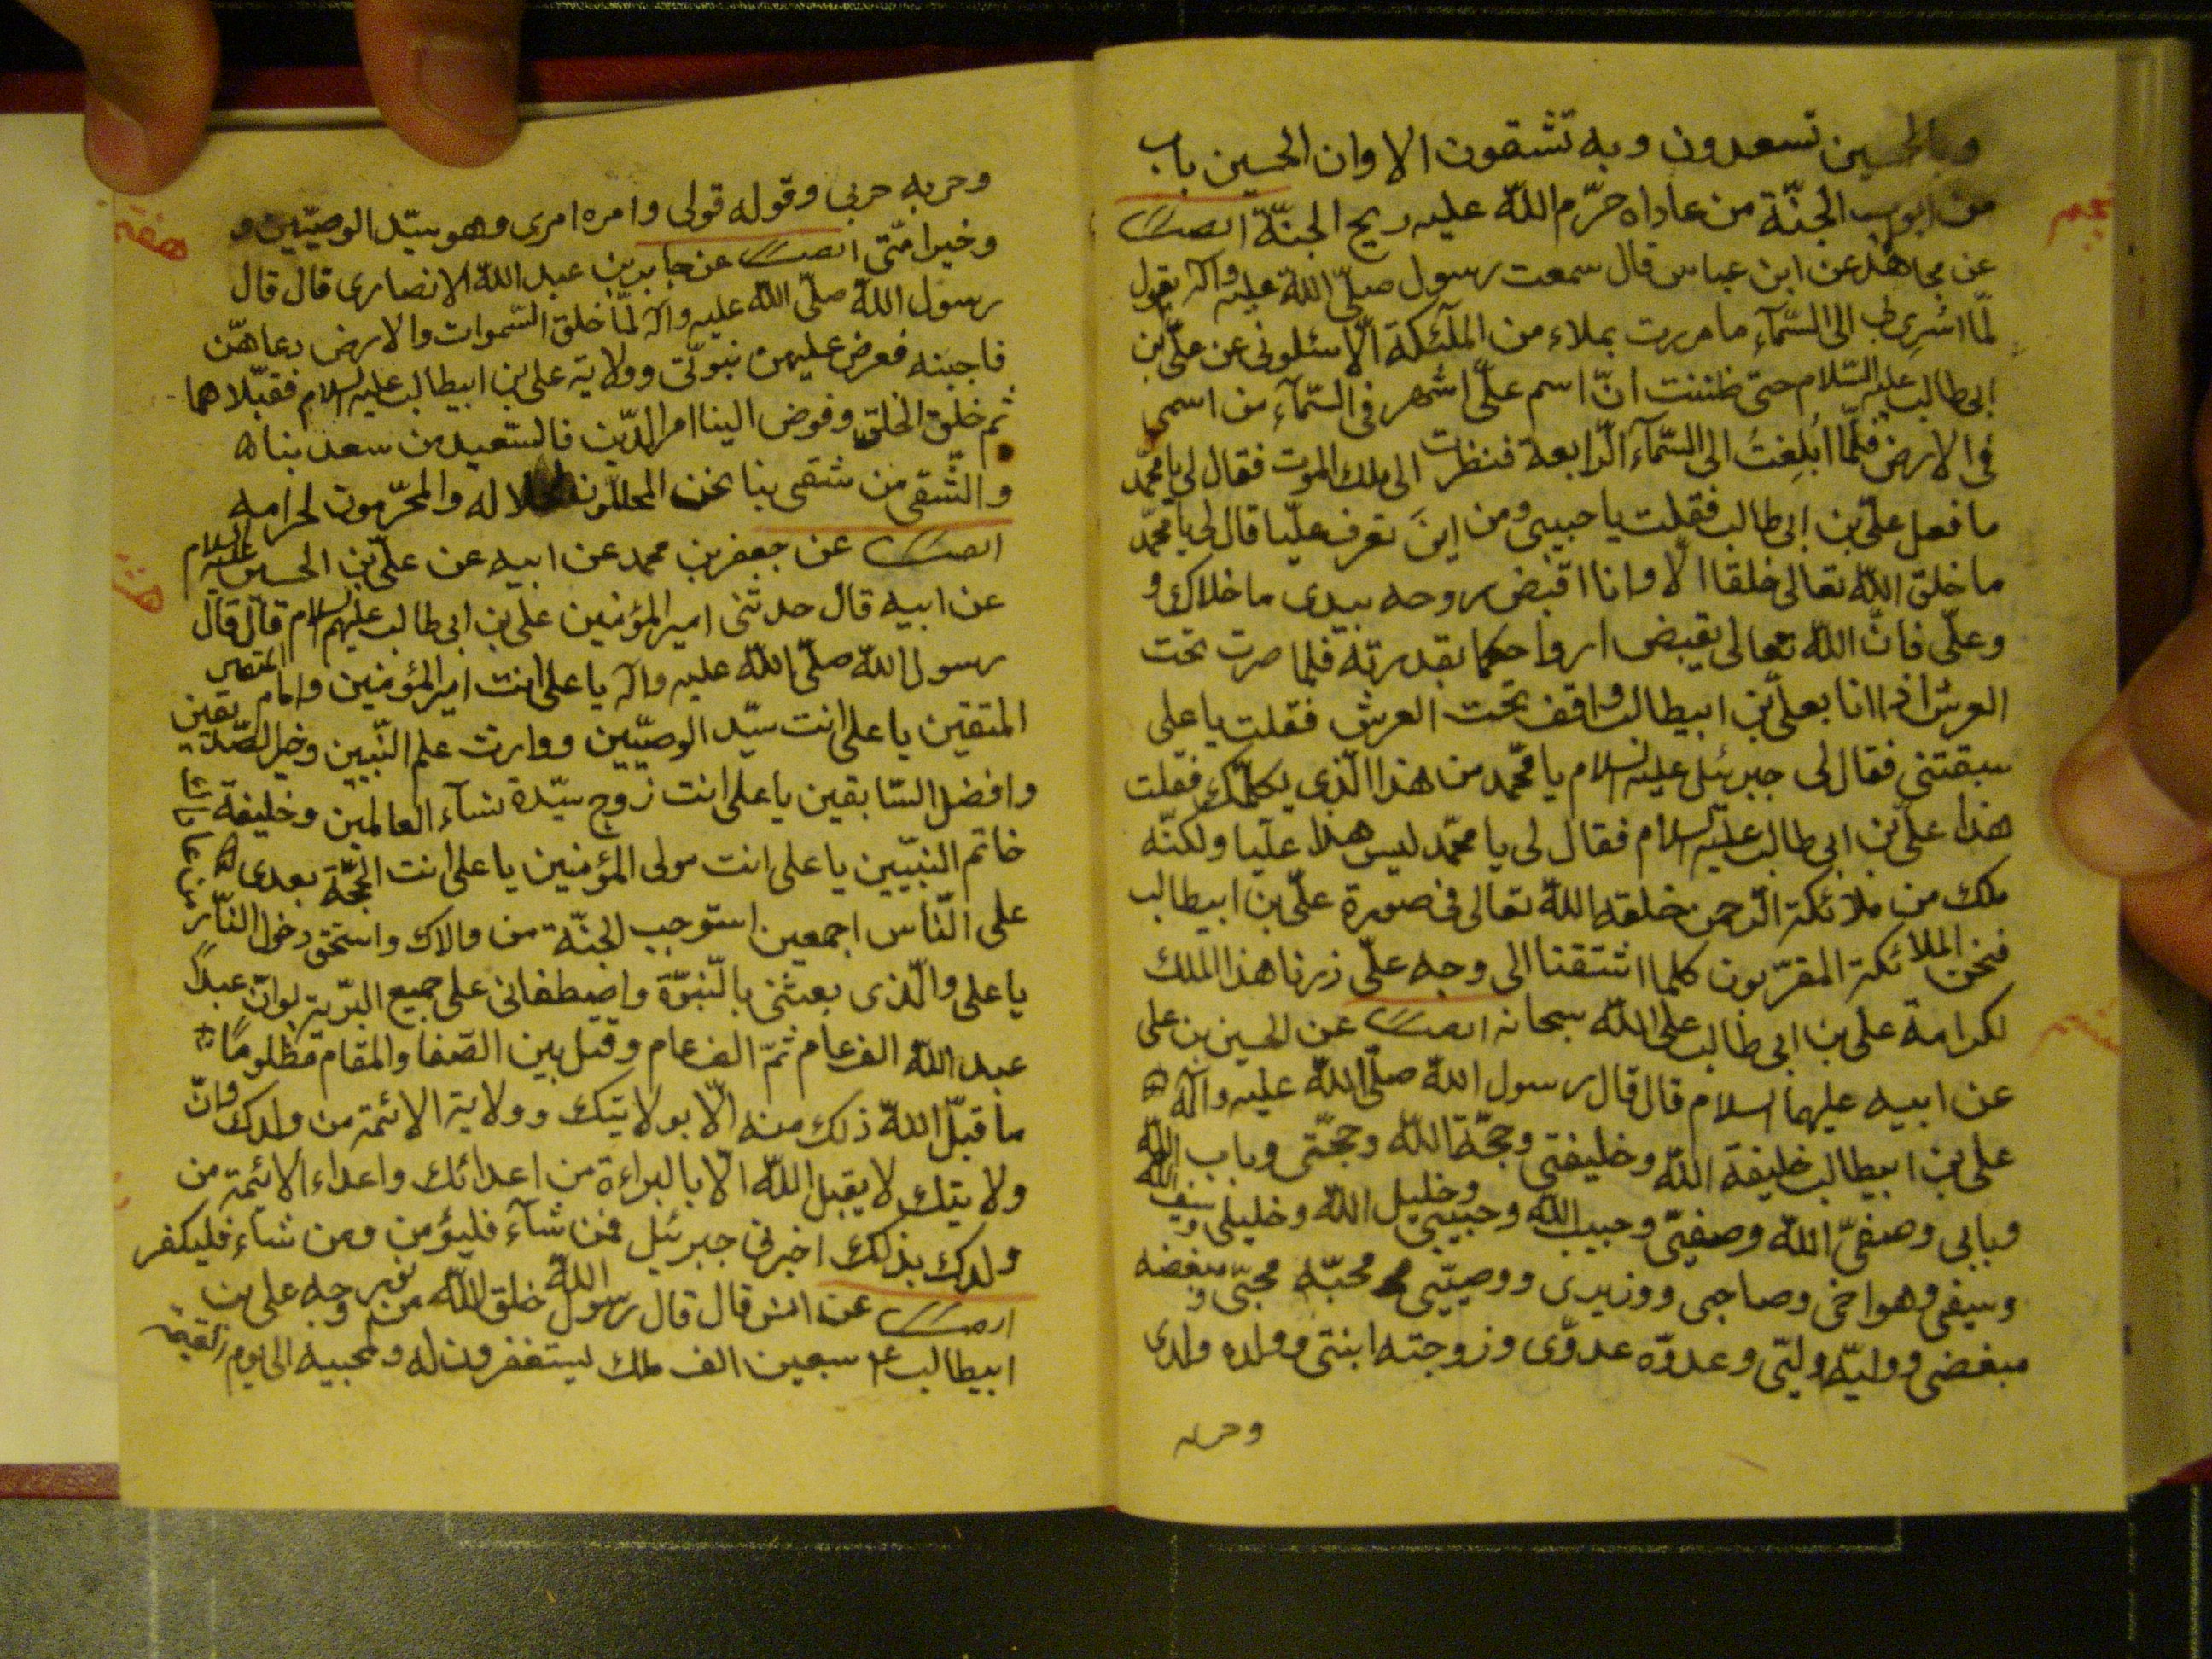 وبالحسين تسعدون وبه تشقون الا وان الحسين باب
من ابواب الجنّة من عاداه حرّم اللّه عليه ريح الجنّة ايضا
عن مجاهد عن ابن عباس قال سمعت رسول صلّى اللّه عليه واله يقول
لمّا اسرى بى الى السّمآء ما مررت بملاء من الملٓئكة الّا سئلونى عن علّى بن
ابى طالب عليه السّلام حتى ظننت انّ اسم علّى اشهر فى السّمآء من اسمى
فى الارض فلمّا ابلغتُ الى السّمآء الرّابعة فنظرت الى ملك الموت فقال لى يا محمّد
ما فعل علّى بن ابى طالب فقلت يا حبيبى ومن اينَ تعرف عليّا قال لى يا محمّد
ما خلق اللّه تعالى خلقا الّا وانا اقبض روحه بيدى ما خلاك و
وعلّى فانّ اللّه تعالى يقبض ارواحكما بقدرته فلما صرت تحت
العرش اذا انا بعلّى بن ابيطالب واقف تحت العرش فقلت يا على
سبقتنى فقال لى جبرئل عليه السلام يا محمّد من هذا الّذى يكلّمك فقلت
هذا علّى بن ابى طالب عليه السلام فقال لى يا محمّد ليس هذا عليّا ولكنّه
ملك من ملائكة الرّحمن خلقه اللّه تعالى فى صورة علّى بن ابيطالب
فنحن الملائكة المقرّبون كلما اشتقنا الى وجه علّى زرنا هذا الملك
لكرامة على بن ابى طالب على اللّه سبحانه ايضا عن الحسين بن على
عن ابيه عليهما السلام قال قال رسول اللّه صلّى اللّه عليه وآله
على بن ابيطالب خليفة اللّه وخليفتى وحجّة اللّه وحجّتى وباب اللّه
وبابى وصفىّ اللّه وصفيّى وحبيب اللّه وحبيبى وخليل اللّه وخليلى وسيف اللّه
وسيفى وهو اخى وصاحبى ووزيرى ووصيّى محبّه محبّى ومبغضه
مبغضى ووليّه وليّى وعدوّه عدوّى وزوجته ابنتى وولده ولدى
وحربه
وحربه حربى وقوله قولى وامره امرى وهو سيّد الوصيّين و
وخير امّتى ايضا عن جابر بن عبد اللّه الانصارى قال قال
رسول اللّه صلّى اللّه عليه واله لمّا خلق السّموات والارض دعاهنّ
فاجبنه فعرض عليهن نبوّتى وولاية على بن ابيطالب عليه السلام فقبّلاهما
ثم خلق الخلق وفوض الينا امر الدّين فالسّعيد من سعد بنا
والشّقى من شقى بنا نحن المحلّلون لحلاله والمحرّمون لحرامه
ايضا عن جعفر بن محمد عن ابيه عن علّى بن الحسين عليه السلام
عن ابيه قال حدثنى امير المؤمنين على بن ابى طالب عليهم السلام قال قال
رسول اللّه صلّى اللّه عليه واله يا على انت امير المؤمنين وامام
المتقين يا على انت سيّد الوصيّين ووارث علم النّبيين وخير الصّديقين
وافضل السّابقين يا على انت زوج سيّدة نسآء العالمين وخليفة
خاتم النبيّين يا على انت مولى المؤمنين يا على انت الحجّة بعدى
على النّاس اجمعين استوجب الجنّة من والاك واستحق دخول النّار
يا على والّذى بعثنى بالنّبوّة واصطفانى على جميع البريّة لو انّ عبداً
عبد اللّه الف عام ثمّ الف عام وقتل بين الصّفا والمقام مظلومًا
ما قبّل اللّه ذلك منه الّا بولايتك وولاية الائمة من ولدك وانّ
ولايتك لا يقبل اللّه الّا بالبراءة من اعدائك واعداء الائمة من
ولدك بذلك اخبرنى جبرئيل فمن شآء فليؤمن ومن شاء فليكفر
ايضا عن انس قال قال رسول اللّه خلق اللّه من نور وجه على بن
ابيطالب ع سبعين الف ملك يستغفرون له ولمحبيه الى يوم القيمة